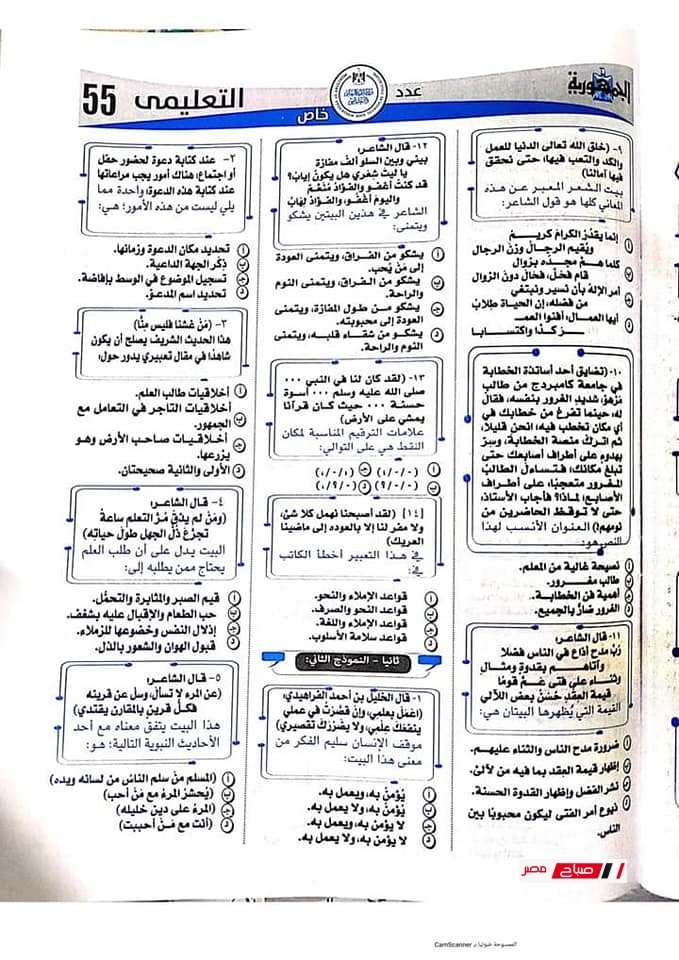 الجمهورية
عدد
خاص
التعليمى
55
٩- (خلق الله تعالى الدنيا للعمل
والكد والتعب فيها، حتى نحقق
فيها آمالنا)
بيت الشعر المعبر عن هذه
المعاني كلها هو قول الشاعر:
أ إنما يقدُرُ الكرامَ كريمٌ
ويُقيم الرجالُ وزنَ الرجال
ب كلما همَّ مجدُه بزوال
قام فحْلٌ، فحَال دون الزوال
ج أمر الإله بأن نسير ونبتغي
من فضله، إن الحياة طِلابُ
د أيها العمال، أفنوا العمـ
ـر كدًا واكتسابا
١٠- (تضايق أحد أساتذة الخطابة
في جامعة كامبردج من طالب
مزهوّ، شديد الغرور بنفسه، فقال
له، حينما تفرغ من خطابك في
أي مكان تخطب فيه؛ انحنِ قليلًا،
ثم اترك منصة الخطابة، وسِرْ
بهدوء على أطراف أصابعك حتى
تبلغ مكانك؛ فتساءل الطالب
المغرور متعجبًا، على أطراف
الأصابع! لماذا؟ فأجاب الأستاذ،
حتى لا توقظ الحاضرين من
نومهم!) العنوان الأنسب لهذا
النص هو:
أ نصيحة غالية من المعلم.
ب طالب مغرور.
ج أهمية فن الخطابة.
د الغرور ضارّ بالجميع.
١١- قال الشاعر:
رُبّ مدح أذاع في الناس فضلا
وأتاهم بقدوة ومثال
وثناء على فتى عمّ قومًا
قيمة العِقد حُسْنُ بعض اللآلي
القيمة التي يُظهرها البيتان هي:
أ ضرورة مدح الناس والثناء عليهم.
ب إظهار قيمة العقد بما فيه من لآلئ.
ج نشر الفضل وإظهار القدوة الحسنة.
د نبوغ أمر الفتى ليكون محبوبًا بين
الناس.
١٢- قال الشاعر:
بيني وبين السلو ألفُ مفازة
يا ليت شِعْري هل يكونُ إيابُ؟
قد كنت أغفو والفؤادُ مُنعَّمٌ
واليوم أغفو، والفؤاد لِهَابُ
الشاعر في هذين البيتين يشكو
ويتمنى:
أ يشكو من الفراق، ويتمنى العودة
إلى مَنْ يُحب.
ب يشكو من الفراق، ويتمنى النوم
والراحة.
ج يشكو من طول المفازة، ويتمنى
العودة إلى محبوبته.
د يشكو من شقاء قلبه، ويتمنى
النوم والراحة.
١٣- (لقد كان لنا في النبي ...
صلى الله عليه وسلم ... أسوة
حسنة ... حيث كان قرآنا
يمشي على الأرض)
علامات الترقيم المناسبة لمكان
النقط هي على التوالي:
أ (-/-/،)
ج (،/-/،)
ب (-/-/؟)
د (-/؟/،)
[١٤] (لقد أصبحنا نهمل كلا شئ،
ولا مفر لنا إلا بالعوده إلى ماضينا
العريك)
في هذا التعبير أخطأ الكاتب
في:
أ قواعد الإملاء والنحو.
ب قواعد النحو والصرف.
ج قواعد الإملاء واللغة.
د قواعد سلامة الأسلوب.
ثانيا - النموذج الثاني:
١- قال الخليل بن أحمد الفراهيدي:
(اعْمَلْ بعلمي، وإنْ قصَّرْتُ في عملي
ينفعْكَ عِلْمي، ولا يضْرُرْكَ تقصيري)
موقف الإنسان سليم الفكر من
معنى هذا البيت:
أ يُؤمن به، ويعمل به.
ب يُؤمن به، ولا يعمل به.
ج لا يؤمن به، ويعمل به.
د لا يؤمن به، ولا يعمل به.
٢- عند كتابة دعوة لحضور حفل
أو اجتماع؛ هناك أمور يجب مراعاتها
عند كتابة هذه الدعوة، واحدة مما
يلي ليست من هذه الأمور؛ هي:
أ تحديد مكان الدعوة وزمانها.
ب ذِكْر الجهة الداعية.
ج تسجيل الموضوع في الوسط بإفاضة.
د تحديد اسم المدعوّ.
٣- (مَنْ غشنا فليس مِنَّا)
هذا الحديث الشريف يصلح أن يكون
شاهدًا في مقال تعبيري يدور حول:
أ أخلاقيات طالب العلم.
ب أخلاقيات التاجر في التعامل مع
الجمهور.
ج أخلاقيات صاحب الأرض وهو
يزرعها.
د الأولى والثانية صحيحتان.
٤- قال الشاعر:
(ومَنْ لم يذقْ مُرَّ التعلم ساعةً
تجرّع ذُلَّ الجهل طولَ حياتِه)
البيت يدل على أن طلب العلم
يحتاج ممن يطلبه إلى:
أ قيم الصبر والمثابرة والتحمُّل.
ب حب الطعام والإقبال عليه بشغف.
ج إذلال النفس وخضوعها للزملاء.
د قبول الهوان والشعور بالذل.
٥- قال الشاعر:
(عن المرء لا تسأل، وسل عن قرينه
فكل قرين بالمقارن يقتدي)
هذا البيت يتفق معناه مع أحد
الأحاديث النبوية التالية؛ هو:
أ (المسلم مَنْ سلم الناس من لسانه ويده)
ب (يُحشرُ المرءُ مع مَنْ أحب)
ج (المرءُ على دين خليله)
د (أنت مع مَنْ أحببت)
صباح مصر
الممسوحة ضوئيا بـ CamScanner